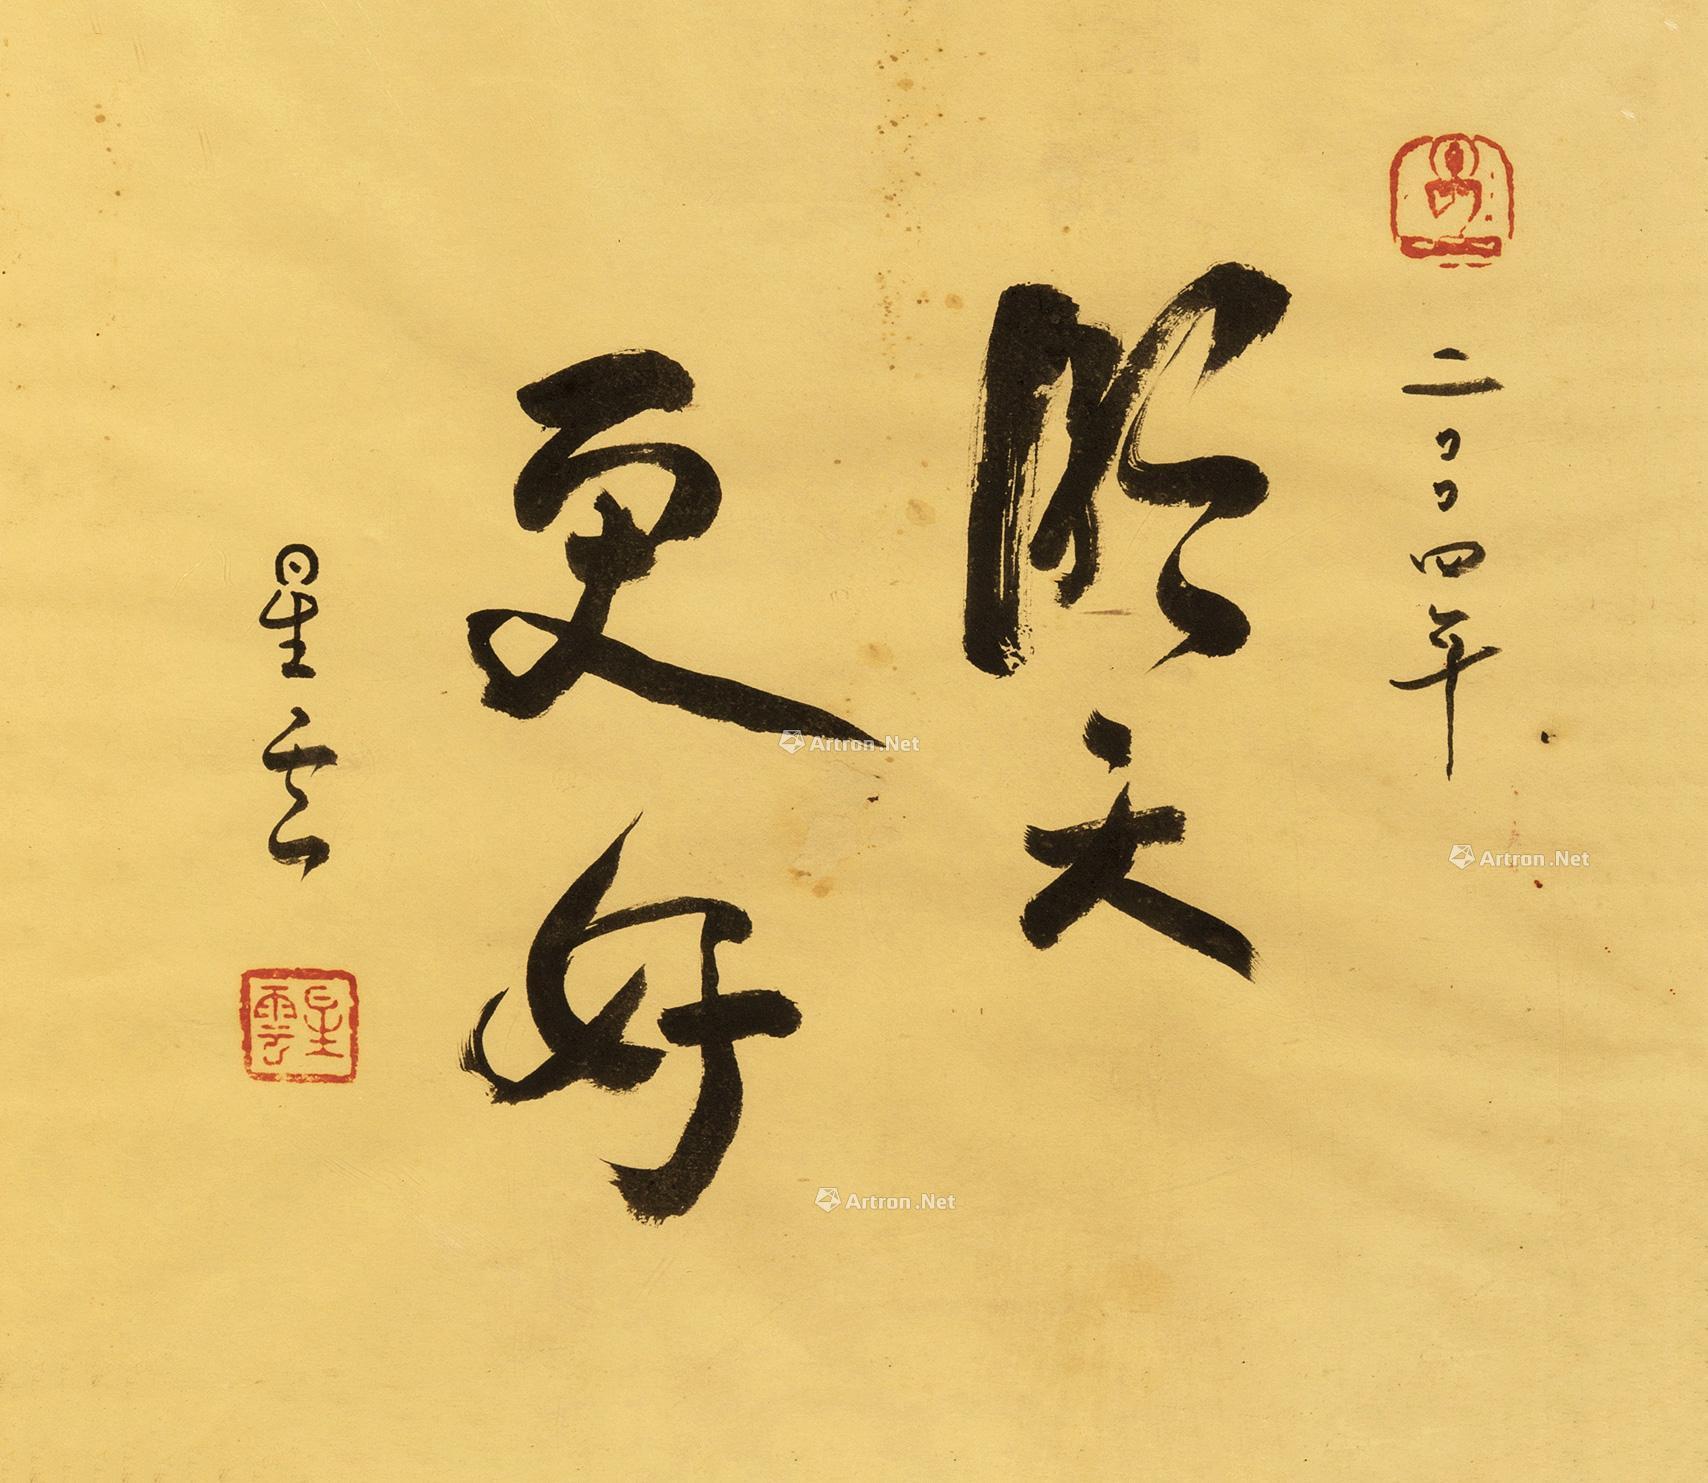 二〇〇四年
明天
更好
星云
星雲
Artron.Net
Artron.Net
Artron.Net